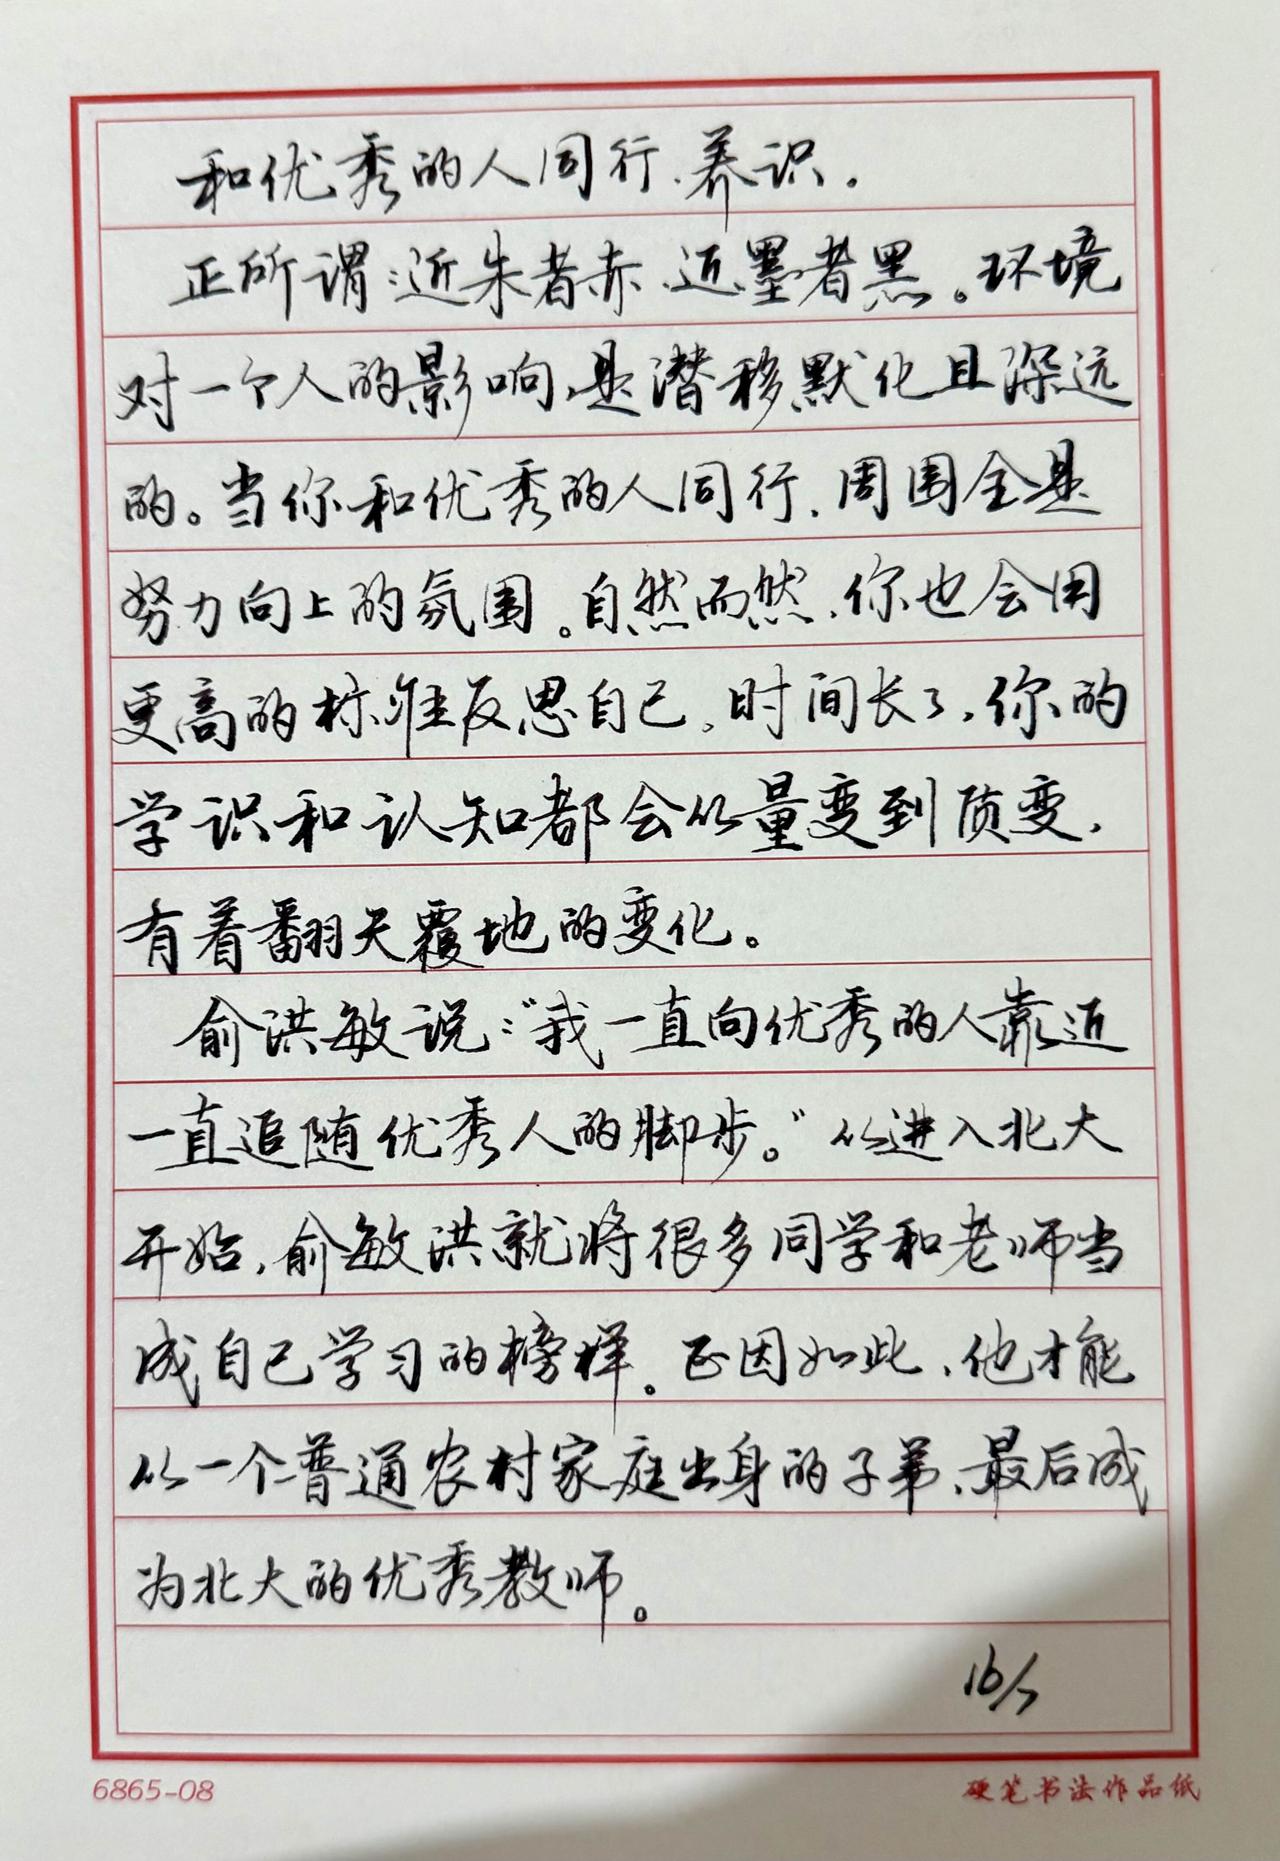 和优秀的人同行、养识。
正所谓：近朱者赤、近墨者黑。环境
对一个人的影响，是潜移默化且深远
的。当你和优秀的人同行，周围全是
努力向上的氛围。自然而然，你也会用
更高的标准反思自己，时间长了，你的
学识和认知都会从量变到质变，
有着翻天覆地的变化。
俞洪敏说：“我一直向优秀的人靠近
一直追随优秀人的脚步。”从进入北大
开始，俞敏洪就将很多同学和老师当
成自己学习的榜样。正因如此，他才能
从一个普通农村家庭出身的子弟、最后成
为北大的优秀教师。
6865-08
硬笔书法作品纸